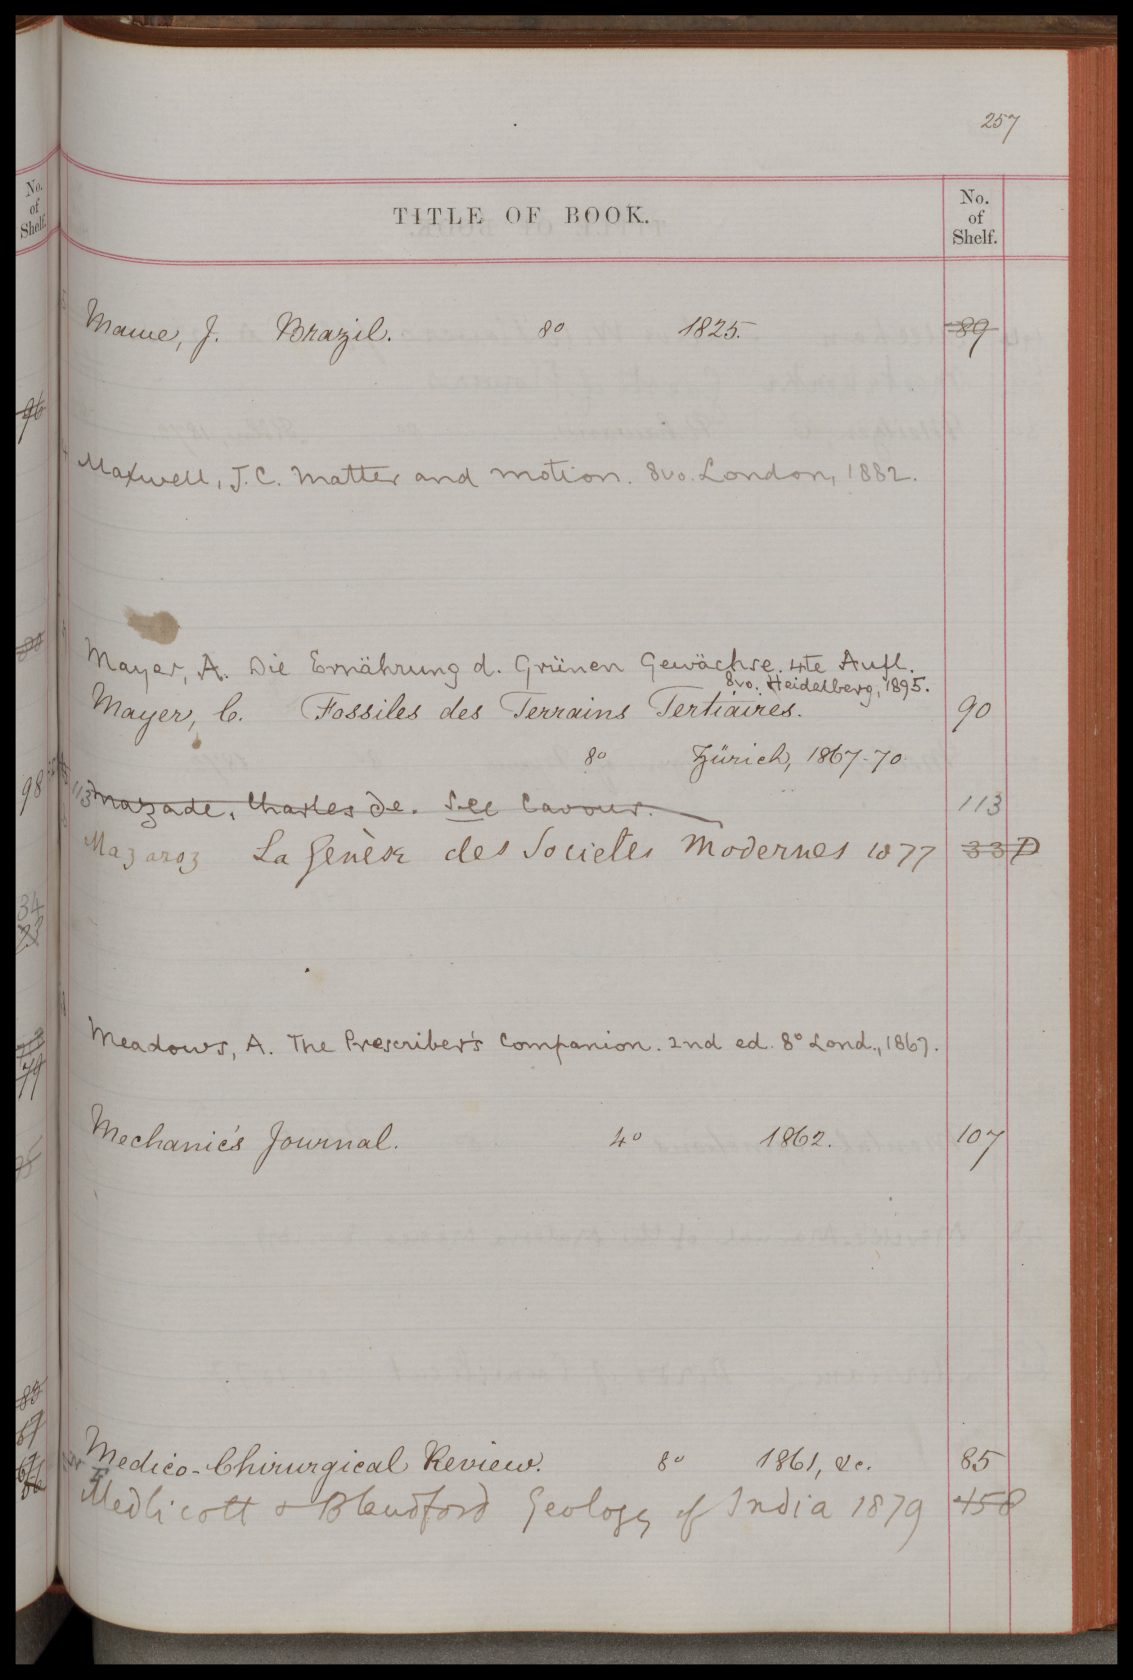 257
No.
of
Shelf.
TITLE OF BOOK.
No.
of
Shelf.
Mawe, J. Brazil. 8o 1825. 89
96
Maxwell, J.C. Matter and motion. 8vo. London, 1882.
Mayer, A. Die Ernährung d. Grünen Gewächse. 4te Aufl.
8vo. Heidelberg, 1895.
Mayer, C. Fossiles des Terrains Tertiaires. 90
8o Zürich, 1867-70
98
113 Mazade, Charles de. See Cavour. 113
Mazaroz La Genèse des Societes Modernes 1877 33 D
34
Meadows, A. The Prescriber's Companion. 2nd ed. 8o Lond., 1867.
Mechanic's Journal. 4o 1862. 107
Medico-Chirurgical Review. 8o 1861, &c. 85
Medlicott & Blandford Geology of India 1879 158